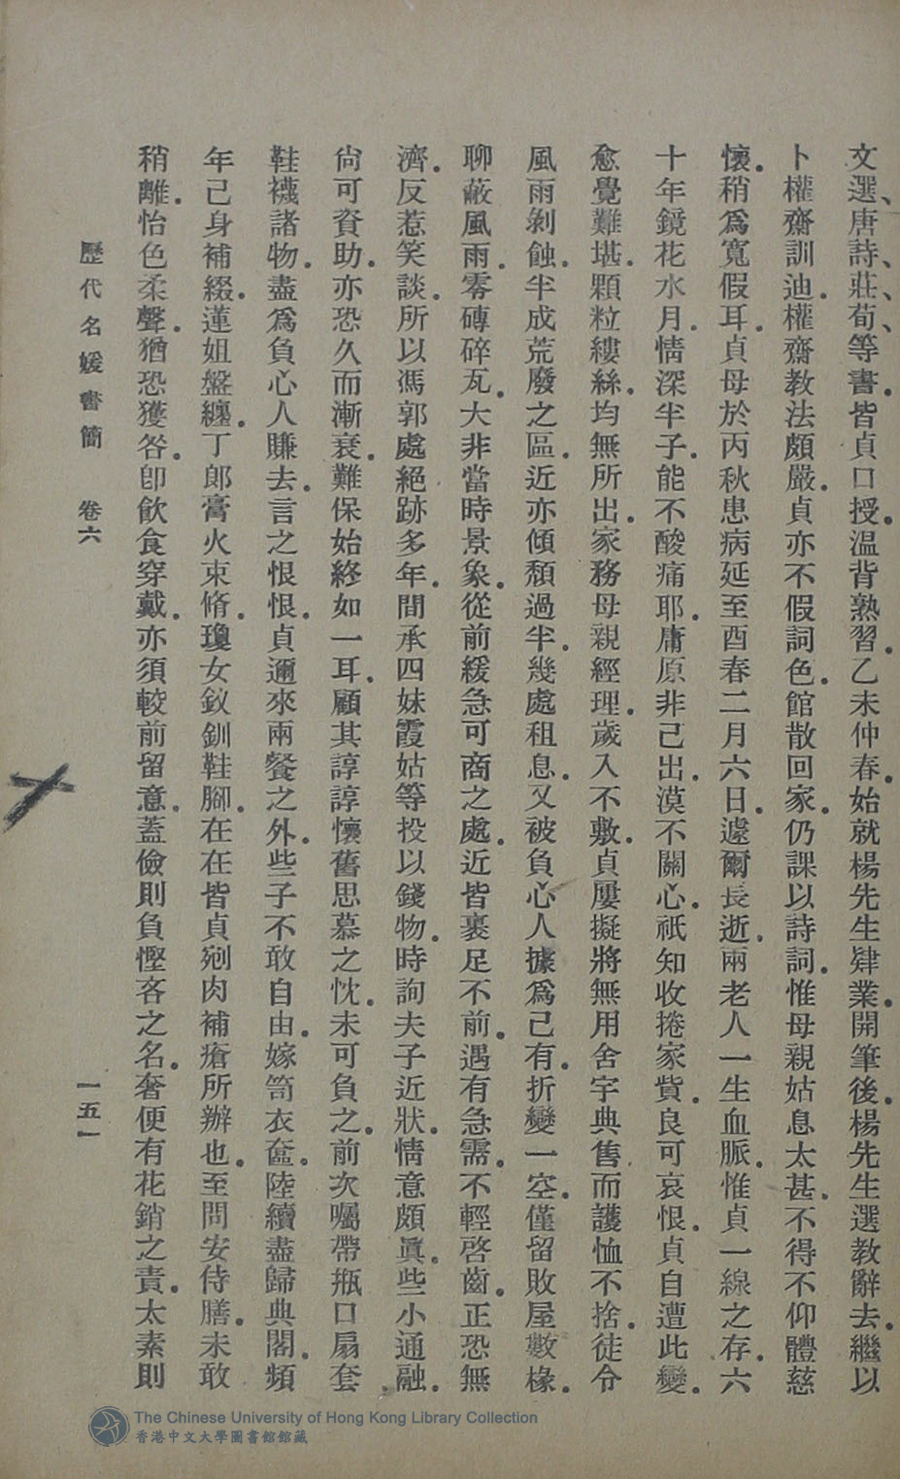 文選、唐詩、莊、荀、等書。皆貞口授。温背熟習。乙未仲春。始就楊先生肄業。開筆後。楊先生選教辭去。繼以
卜權齋訓迪。權齋教法頗嚴。貞亦不假詞色。館散回家。仍課以詩詞。惟母親姑息太甚。不得不仰體慈
懷。稍爲寬假耳。貞母於丙秋患病延至酉春二月六日。遽爾長逝。兩老人一生血脈。惟貞一線之存。六
十年鏡花水月。情深半子。能不酸痛耶。庸原非己出。漠不關心。祇知收捲家貲。良可哀恨。貞自遭此變。
愈覺難堪。顆粒縷絲。均無所出。家務母親經理。歲入不敷。貞屢擬將無用舍宇典售。而護恤不捨。徒令
風雨剝蝕。半成荒廢之區。近亦傾頹過半。幾處租息。又被負心人據爲己有。折變一空。僅留敗屋數椽。
聊蔽風雨。零磚碎瓦。大非當時景象。從前緩急可商之處。近皆裹足不前。遇有急需。不輕啓齒。正恐無
濟。反惹笑談。所以馮郭處絕跡多年。間承四妹霞姑等投以錢物。時詢夫子近狀。情意頗眞。些小通融。
尙可資助。亦恐久而漸衰。難保始終如一耳。顧其諄諄懷舊思慕之忱。未可負之。前次囑帶瓶口扇套
鞋襪諸物。盡爲負心人賺去。言之恨恨。貞邇來兩餐之外。些子不敢自由。嫁笥衣奩。陸續盡歸典閣。頻
年己身補綴。蓮姐盤纏。丁郎膏火束脩。瓊女釵釧鞋腳。在在皆貞剜肉補瘡所辦也。至問安侍膳。未敢
稍離。怡色柔聲。猶恐獲咎。卽飲食穿戴。亦須較前留意。蓋儉則負慳吝之名。奢便有花銷之責。太素則
歷代名媛書簡 卷六 一五一
The Chinese University of Hong Kong Library Collection
香港中文大學圖書館館藏